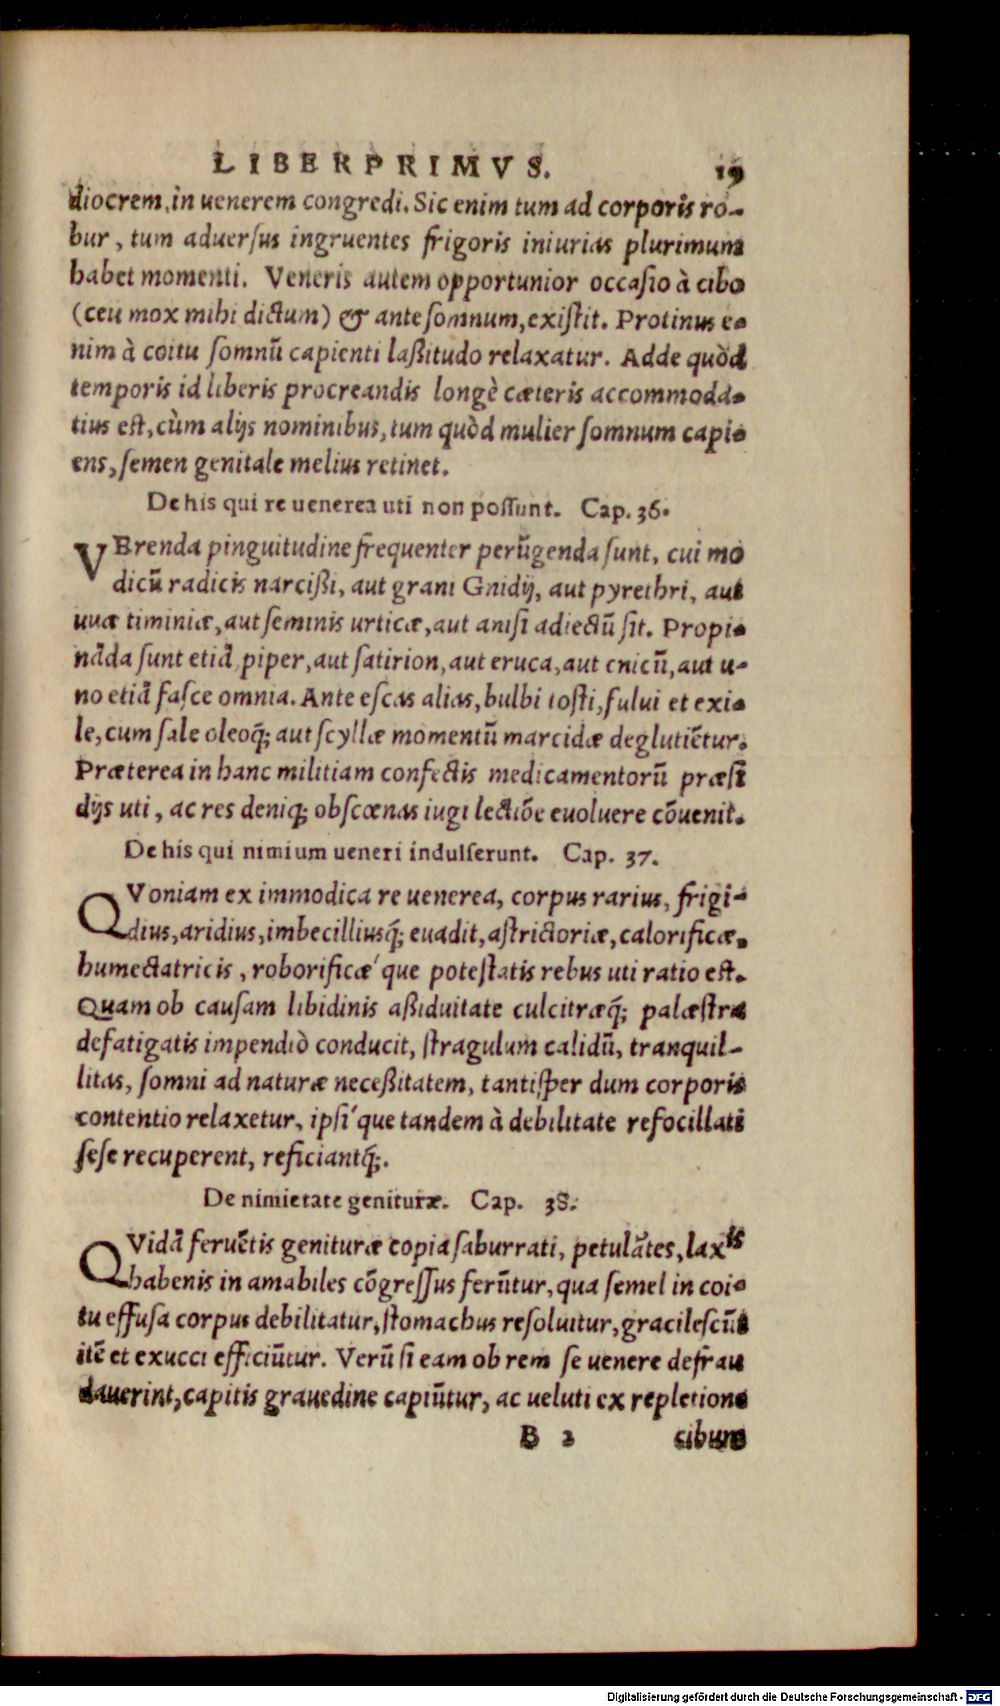 LIBER PRIMVS. 19
diocrem, in uenerem congredi. Sic enim tum ad corporis ro-
bur, tum aduersus ingruentes frigoris iniurias plurimum
habet momenti. Veneris autem opportunior occasio à cibo
(ceu mox mihi dictum) & ante somnum, existit. Protinus e-
nim à coitu somnũ capienti laßitudo relaxatur. Adde quòd
temporis id liberis procreandis longè cæteris accommoda-
tius est, cùm alijs nominibus, tum quòd mulier somnum capi-
ens, semen genitale melius retinet.
De his qui re uenerea uti non possunt. Cap. 36.
VBrenda pinguitudine frequenter perũgenda sunt, cui mo
dicũ radicis narcißi, aut grani Gnidij, aut pyrethri, aut
uuæ timiniæ, aut seminis urticæ, aut anisi adiectũ sit. Propi-
nãda sunt etiã piper, aut satirion, aut eruca, aut cnicũ, aut u-
no etiã fasce omnia. Ante escas alias, bulbi tosti, fului et exi-
le, cum sale oleoq́; aut scyllæ momentũ marcidæ deglutiẽtur.
Præterea in hanc militiam confectis medicamentorũ præsi
dijs uti, ac res deniq; obscœnas iugi lectiõe euoluere cõuenit.
De his qui nimium ueneri indulserunt. Cap. 37.
QVoniam ex immodica re uenerea, corpus rarius, frigi-
dius, aridius, imbecilliusq́; euadit, astrictoriæ, calorificæ,
humectatricis, roborificæ´que potestatis rebus uti ratio est.
Quam ob causam libidinis aßiduitate culcitræq́; palæstra
defatigatis impendiò conducit, stragulum calidũ, tranquil-
litas, somni ad naturæ neceßitatem, tantisper dum corporis
contentio relaxetur, ipsi´que tandem à debilitate refocillati
sese recuperent, reficiantq́;.
De nimietate genituræ. Cap. 38.
QVidã feruẽtis genituræ copia saburrati, petulãtes, laxis
habenis in amabiles cõgressus ferũtur, qua semel in coi-
tu effusa corpus debilitatur, stomachus resoluitur, gracilescũt
itẽ et exucci efficiũtur. Verũ si eam ob rem se uenere defrau
dauerint, capitis grauedine capiũtur, ac ueluti ex repletione
B 2 cibum
Digitalisierung gefördert durch die Deutsche Forschungsgemeinschaft - DFG